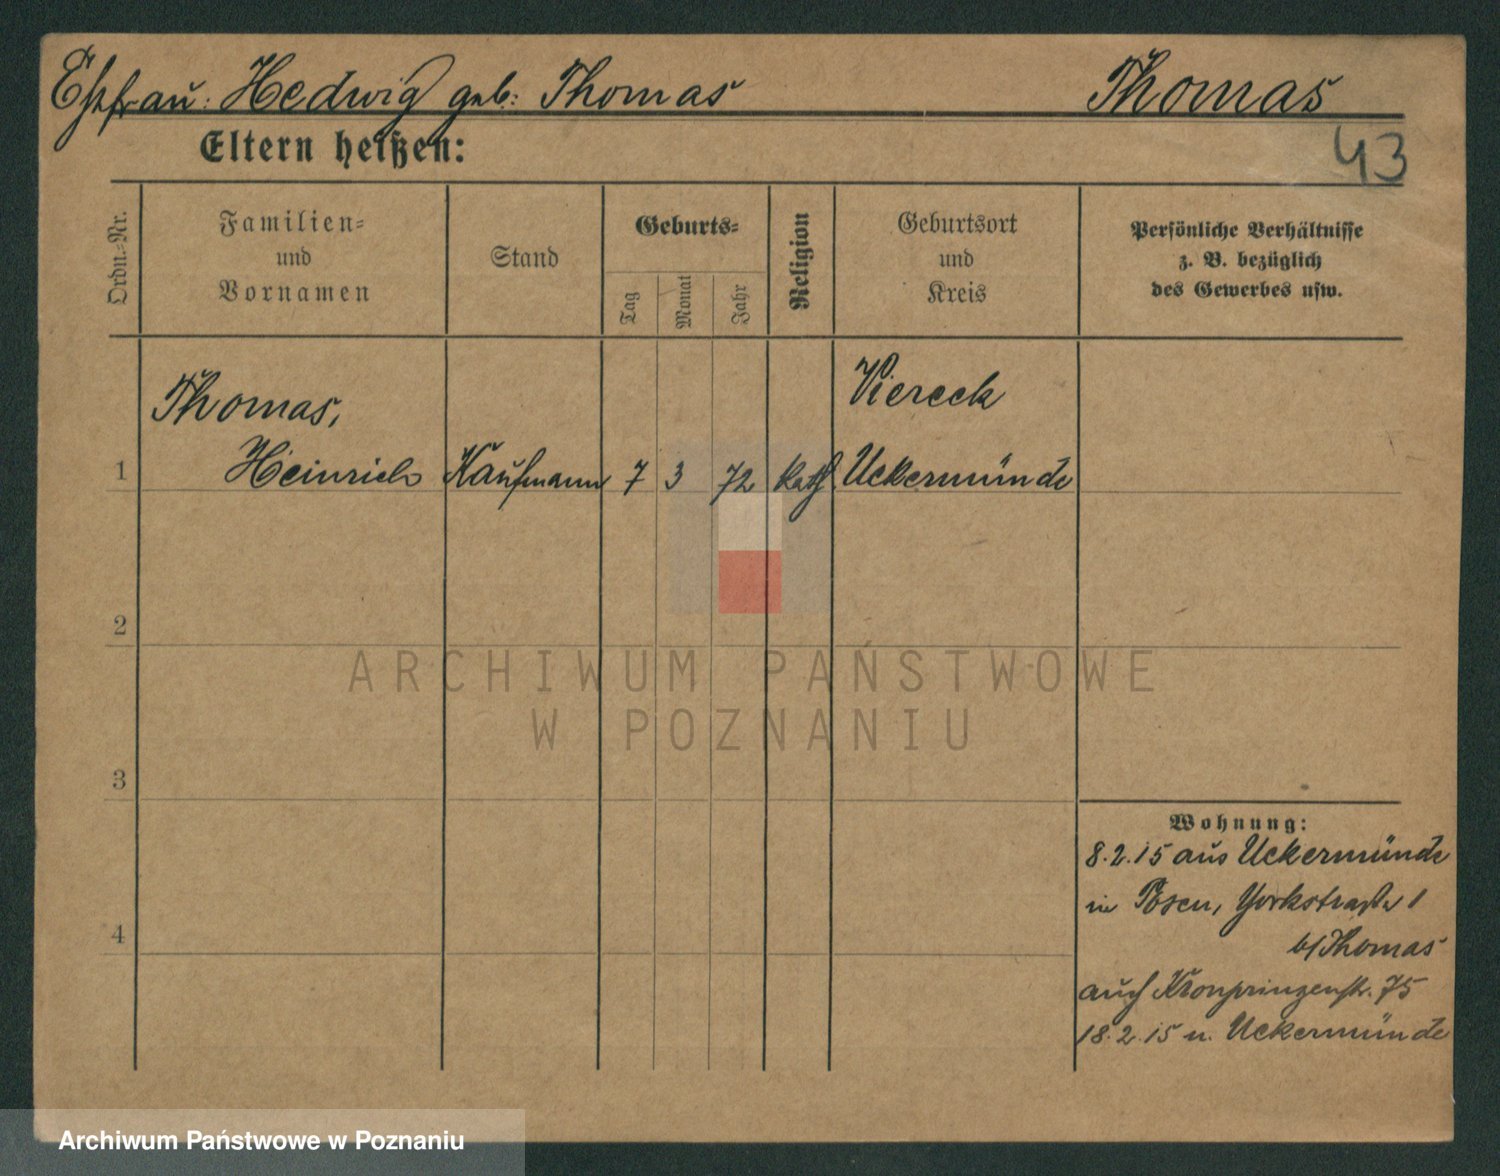 Ehefrau: Hedwig geb: Thomas Thomas
Eltern heißen:
43
Ordn.-Nr.
Familien-
und
Vornamen
Stand
Geburts-
Tag
Monat
Jahr
Religion
Geburtsort
und
Kreis
Persönliche Verhältnisse
z. B. bezüglich
des Gewerbes usw.
Thomas, Viereck
1 Heinrich Kaufmann 7 3 72 kath. Uckermünde
2
3
4
Wohnung:
8.2.15 aus Uckermünde
in Posen, Yorkstraße 1
b/Thomas
auch Kronprinzenstr. 75
18.2.15 n. Uckermünde
ARCHIWUM PAŃSTWOWE
W POZNANIU
Archiwum Państwowe w Poznaniu